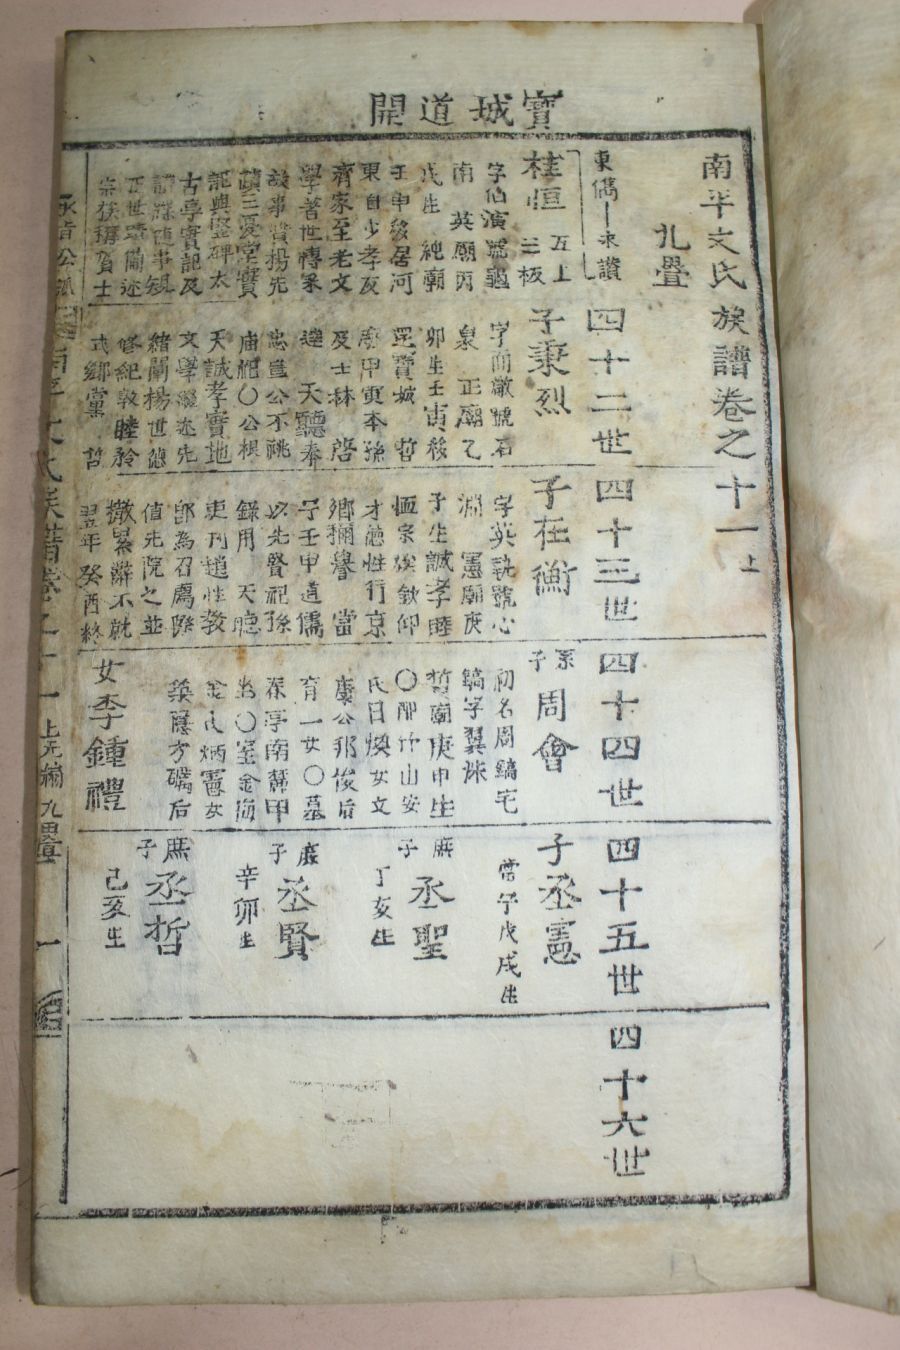 寶城道開
南平文氏族譜卷之十一上
九疊
東儁―永讚
桂恒 五上 三板
字伯演號龜
南 英廟丙
戊生 純廟
壬申移居河
東自少孝友
齊家至老文
學著世傳家
故事贊揚先
蹟三憂堂實
記與墓碑太
古亭實記及
四十二世
子秉烈
字簡緻號石
泉 正廟乙
卯生壬寅移
寓寶城 哲
廟甲寅本孫
及士林 啓
達 天聽奉
忠宣公不祧
廟祀〇公根
天誠孝實地
文學繼述先
緖闡揚世德
修紀敦睦矜
式鄕黨 哲
四十三世
子在衡
字英執號心
淵 憲廟庚
子生誠孝睦
恤宗族欽仰
才德性行京
鄕彌譽 當
宁壬申道儒
以先賢祀孫
錄用 天聽
吏刊趙性敎
卽爲召薦際
値先院之並
撤累辭不就
翌年癸酉終
四十四世
系子周會
初名周鎬宅
鎬字翼洙
哲廟庚申生
〇配竹山安
氏日煥女文
康公邦俊后
育一女〇墓
葆亭南麓甲
坐〇室金海
金氏炳憲女
築隱方礪后
女李鍾禮
四十五世
子丞憲
當宁戊戌生
庶子丞聖
丁亥生
庶子丞賢
辛卯生
庶子丞哲
己亥生
四十六世